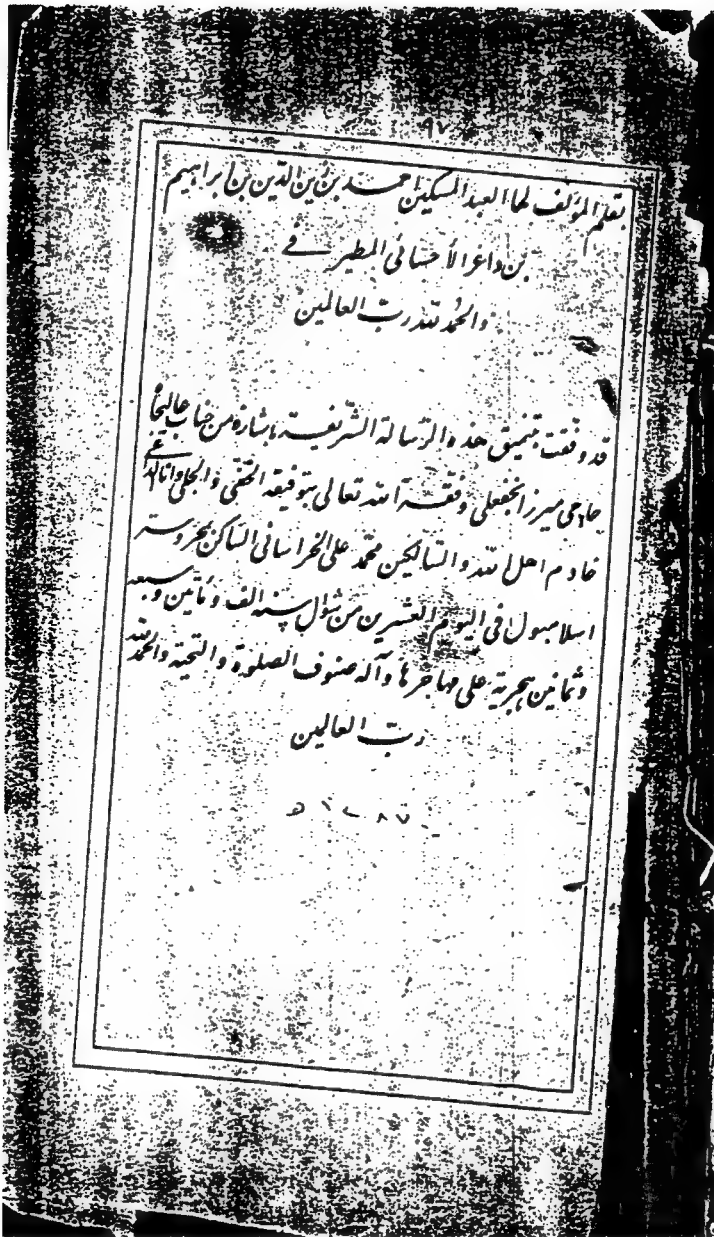 ٩٧
بقلم المؤلف لها العبد المسكين احمد بن زين الدين بن ابراهيم
بن داغر الأحسائى المطيرفى
والحمد لله رب العالمين
قد وفقت بتنميق هذه الرسالة الشريفة باشارة من جناب عاليجاه
حاجى ميرزا نجفعلى وفقه الله تعالى بتوفيقه الخفى والجلى وانا
خادم اهل الله والسالكين محمد على الخراسانى الساكن بمحروسه
اسلامبول فى اليوم العشرين من شوال سنه الف ومأتين وسبعه
وثمانين هجرية على مهاجرها وآله صنوف الصلوة والتحية والحمد لله
رب العالمين
١٢٨٧ هـ